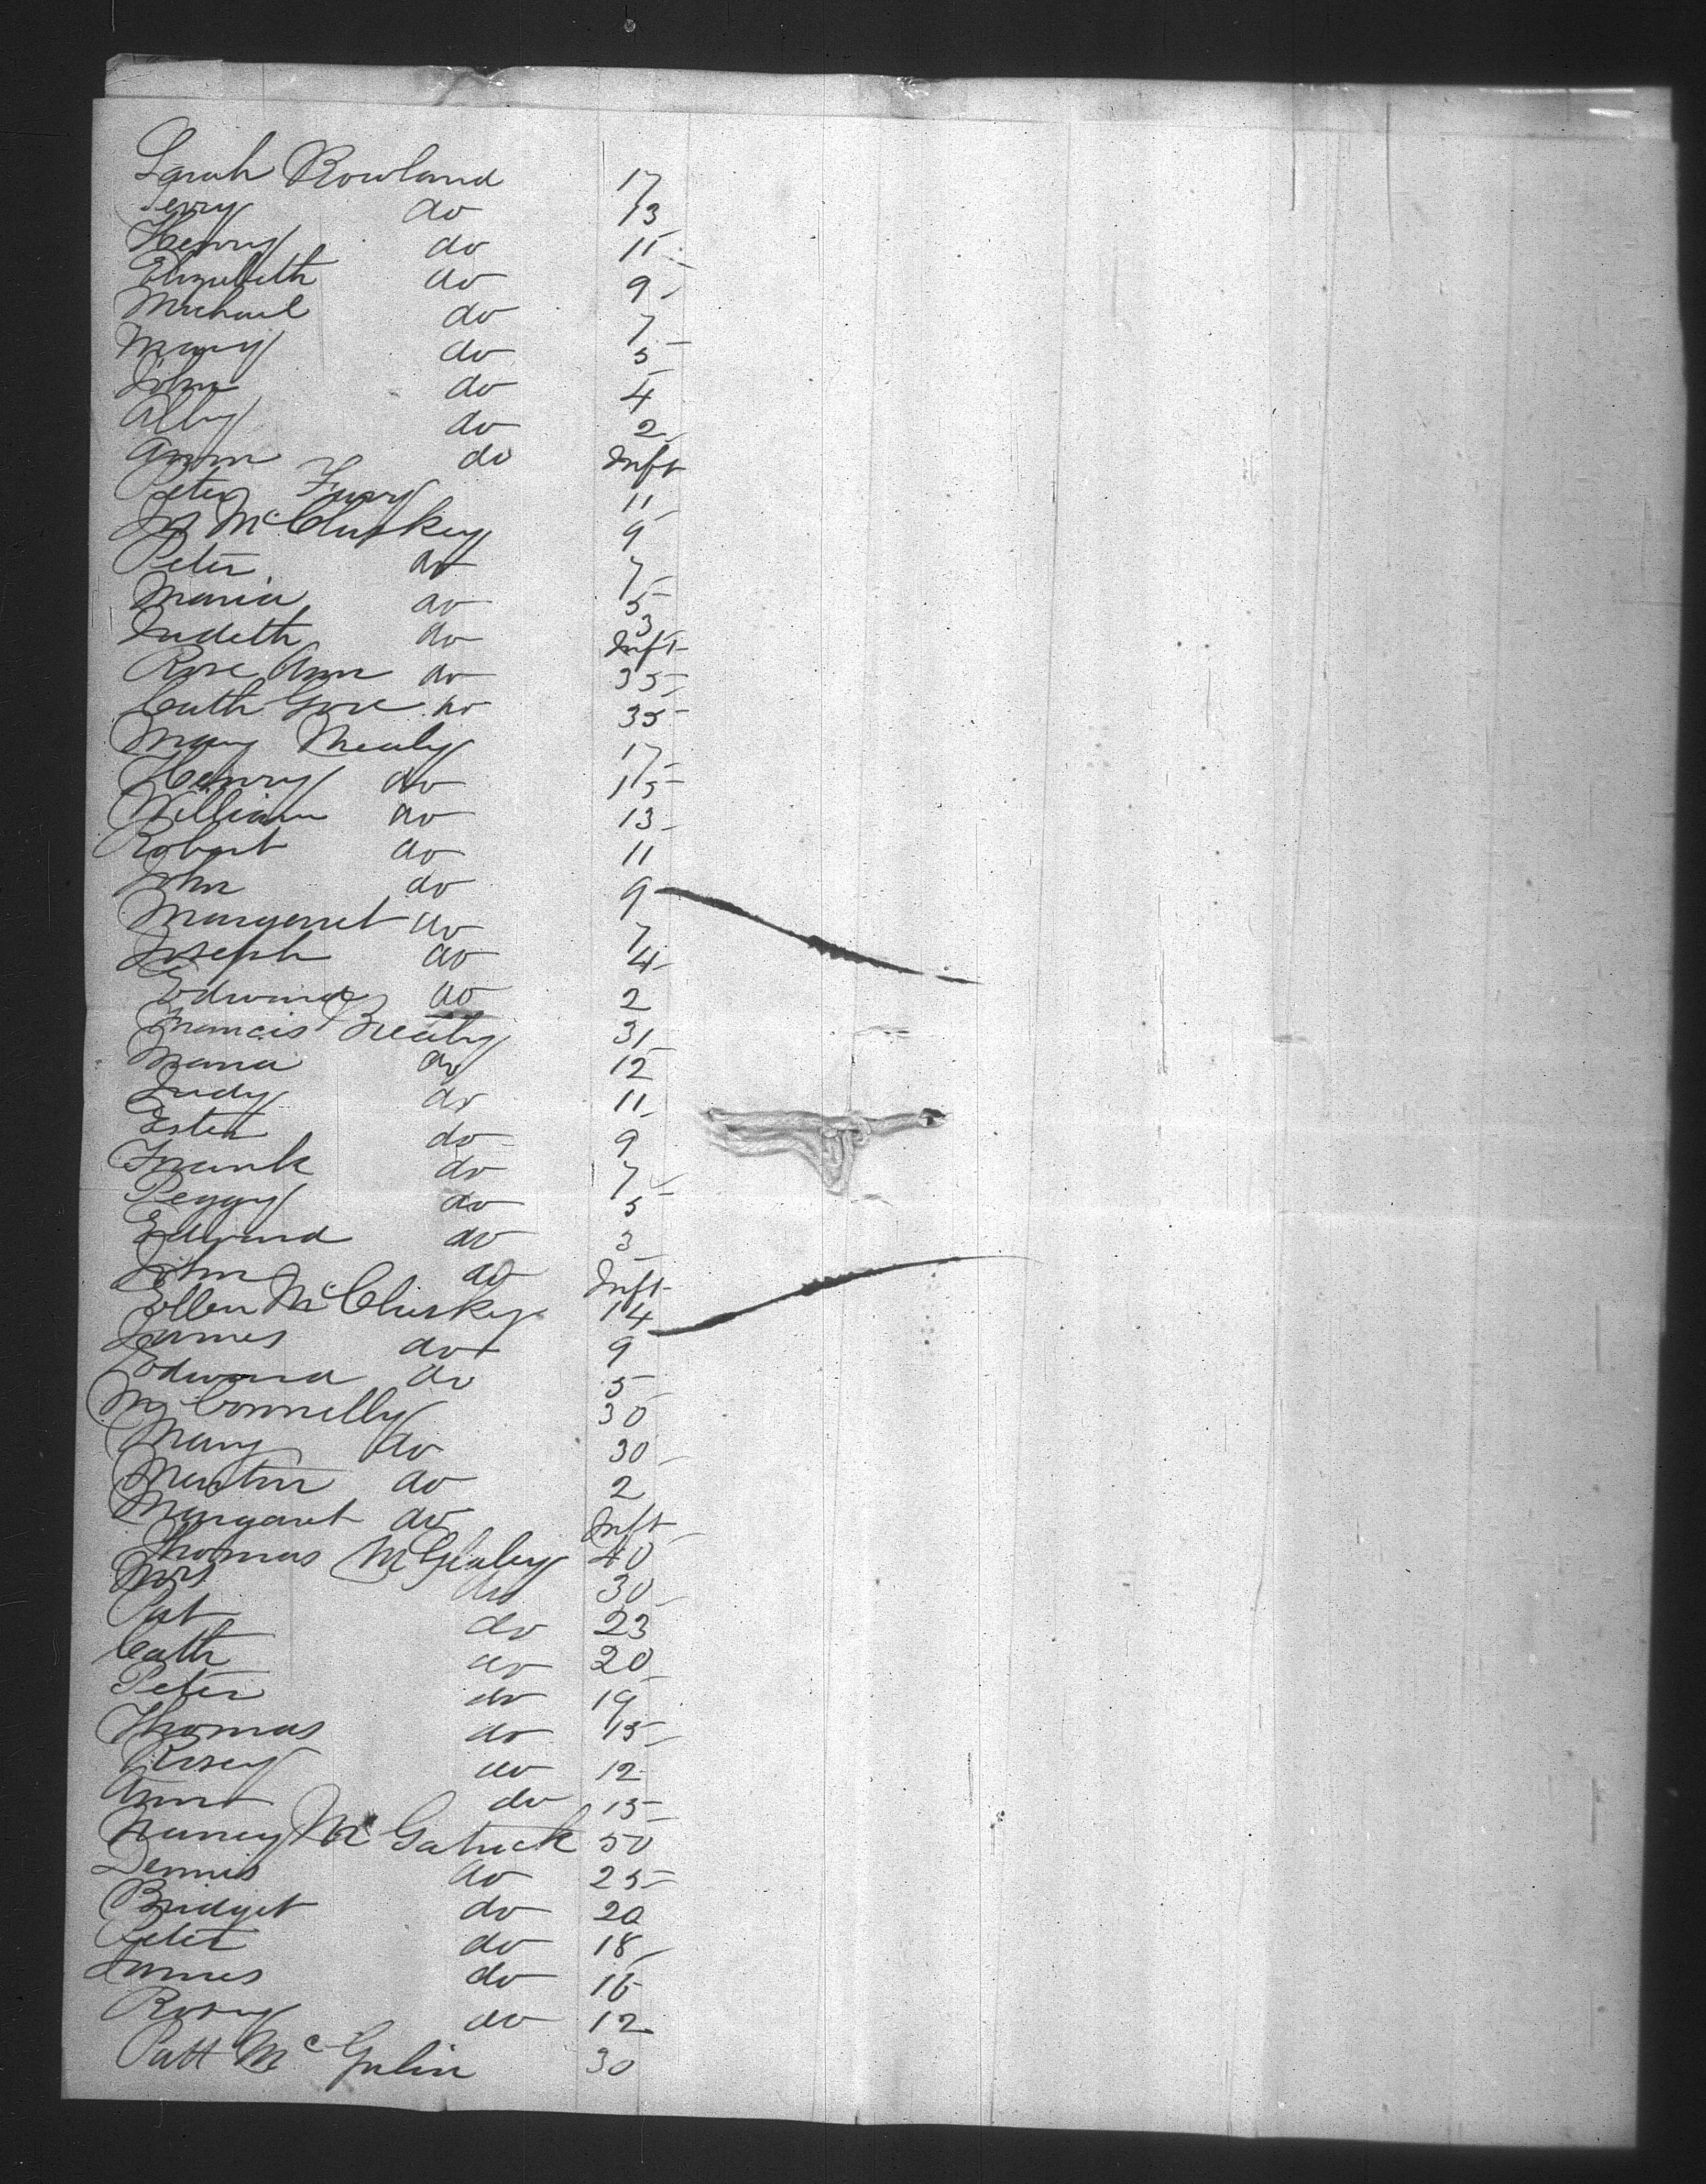 Sarah Rowland 17
Terry do 13
Henry do 11
Elizabeth do 9
Michael do 7
Mary do 5
John do 4
Alby do 2
Ann do Inft
Peter Fury 11
Js McCluskey 9
Peter do 7
Maria do 5
Judith do 3 Inft
Rose Ann do 35
Cath Gore do 35
Mary Mealy 17
Henry do 15
William do 13
Robert do 11
John do 9
Margaret do 7
Joseph do 4
Edward do 2
Francis 31
Maria do 12
Judy do 11
Ester do 9
Frank do 7
Peggy do 5
Edward do 3
John do Inft
Ellen McCluskey 14
James do 9
Edward do 5
M Connelly 30
Mary do 30
Martin do 2
Margaret do Inft
Thomas 40
Mrs do 30
Pat do 23
Cath do 20
Peter do 19
Thomas do 15
Rosey do 12
Ann do 15
Nancy Mc Gatrick 50
Dennis do 25
Bridget do 20
Peter do 18
James do 16
Rosey do 12
Patt Mc 30